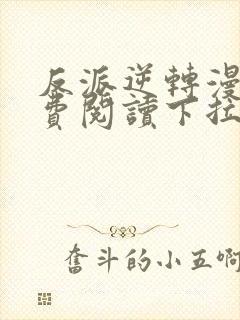 反派逆轉漫
費閱讀下拉
奮斗的小五啊